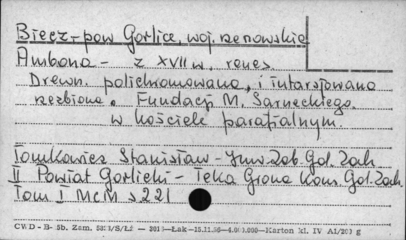 Biecz-pow Gorlice, woj. rzenowskie
Ambona - z XVII w. renes.
Drewn. polichromowana, i intarsjowana
rzezbiona. Fundacji M. Sarneckiego.
w kościele parafialnym.
Tomkowicz Stanisław - Inw. Zab. Gal. Zach
II Powiat Gorlicki - Teka Grona Kons. Gal. Zach.
Tom I MCM s 221
CWD - B- 5b. Zam. /S/Łż — Łak — 15.11.56 — 4.000.000 — Karton kl. IV A1/200 g